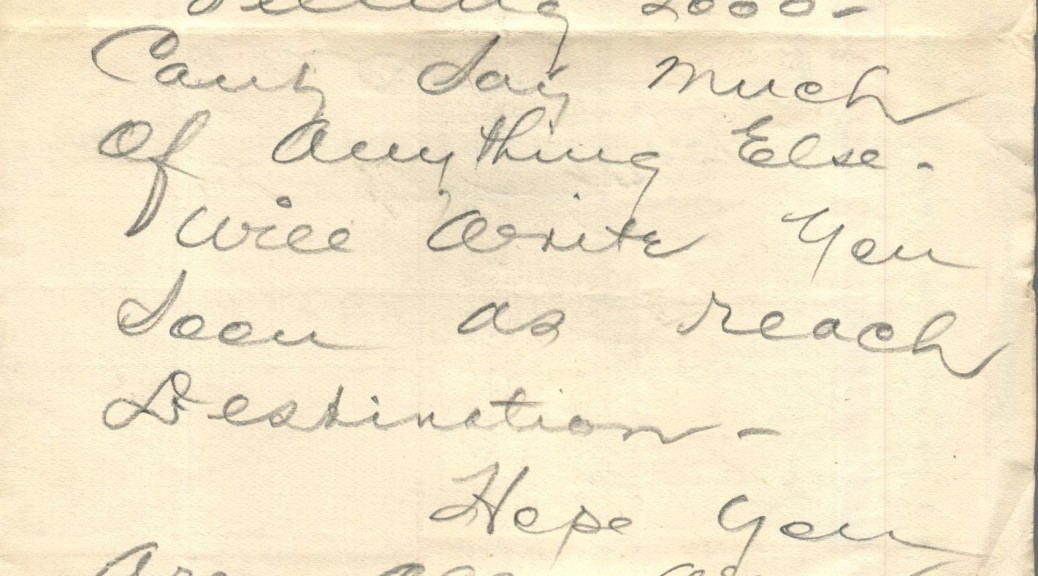 Feeling Good-
Cant Say Much
Of Anything Else.
Will Write You
Soon as reach
Destination-
Hope You
Are all